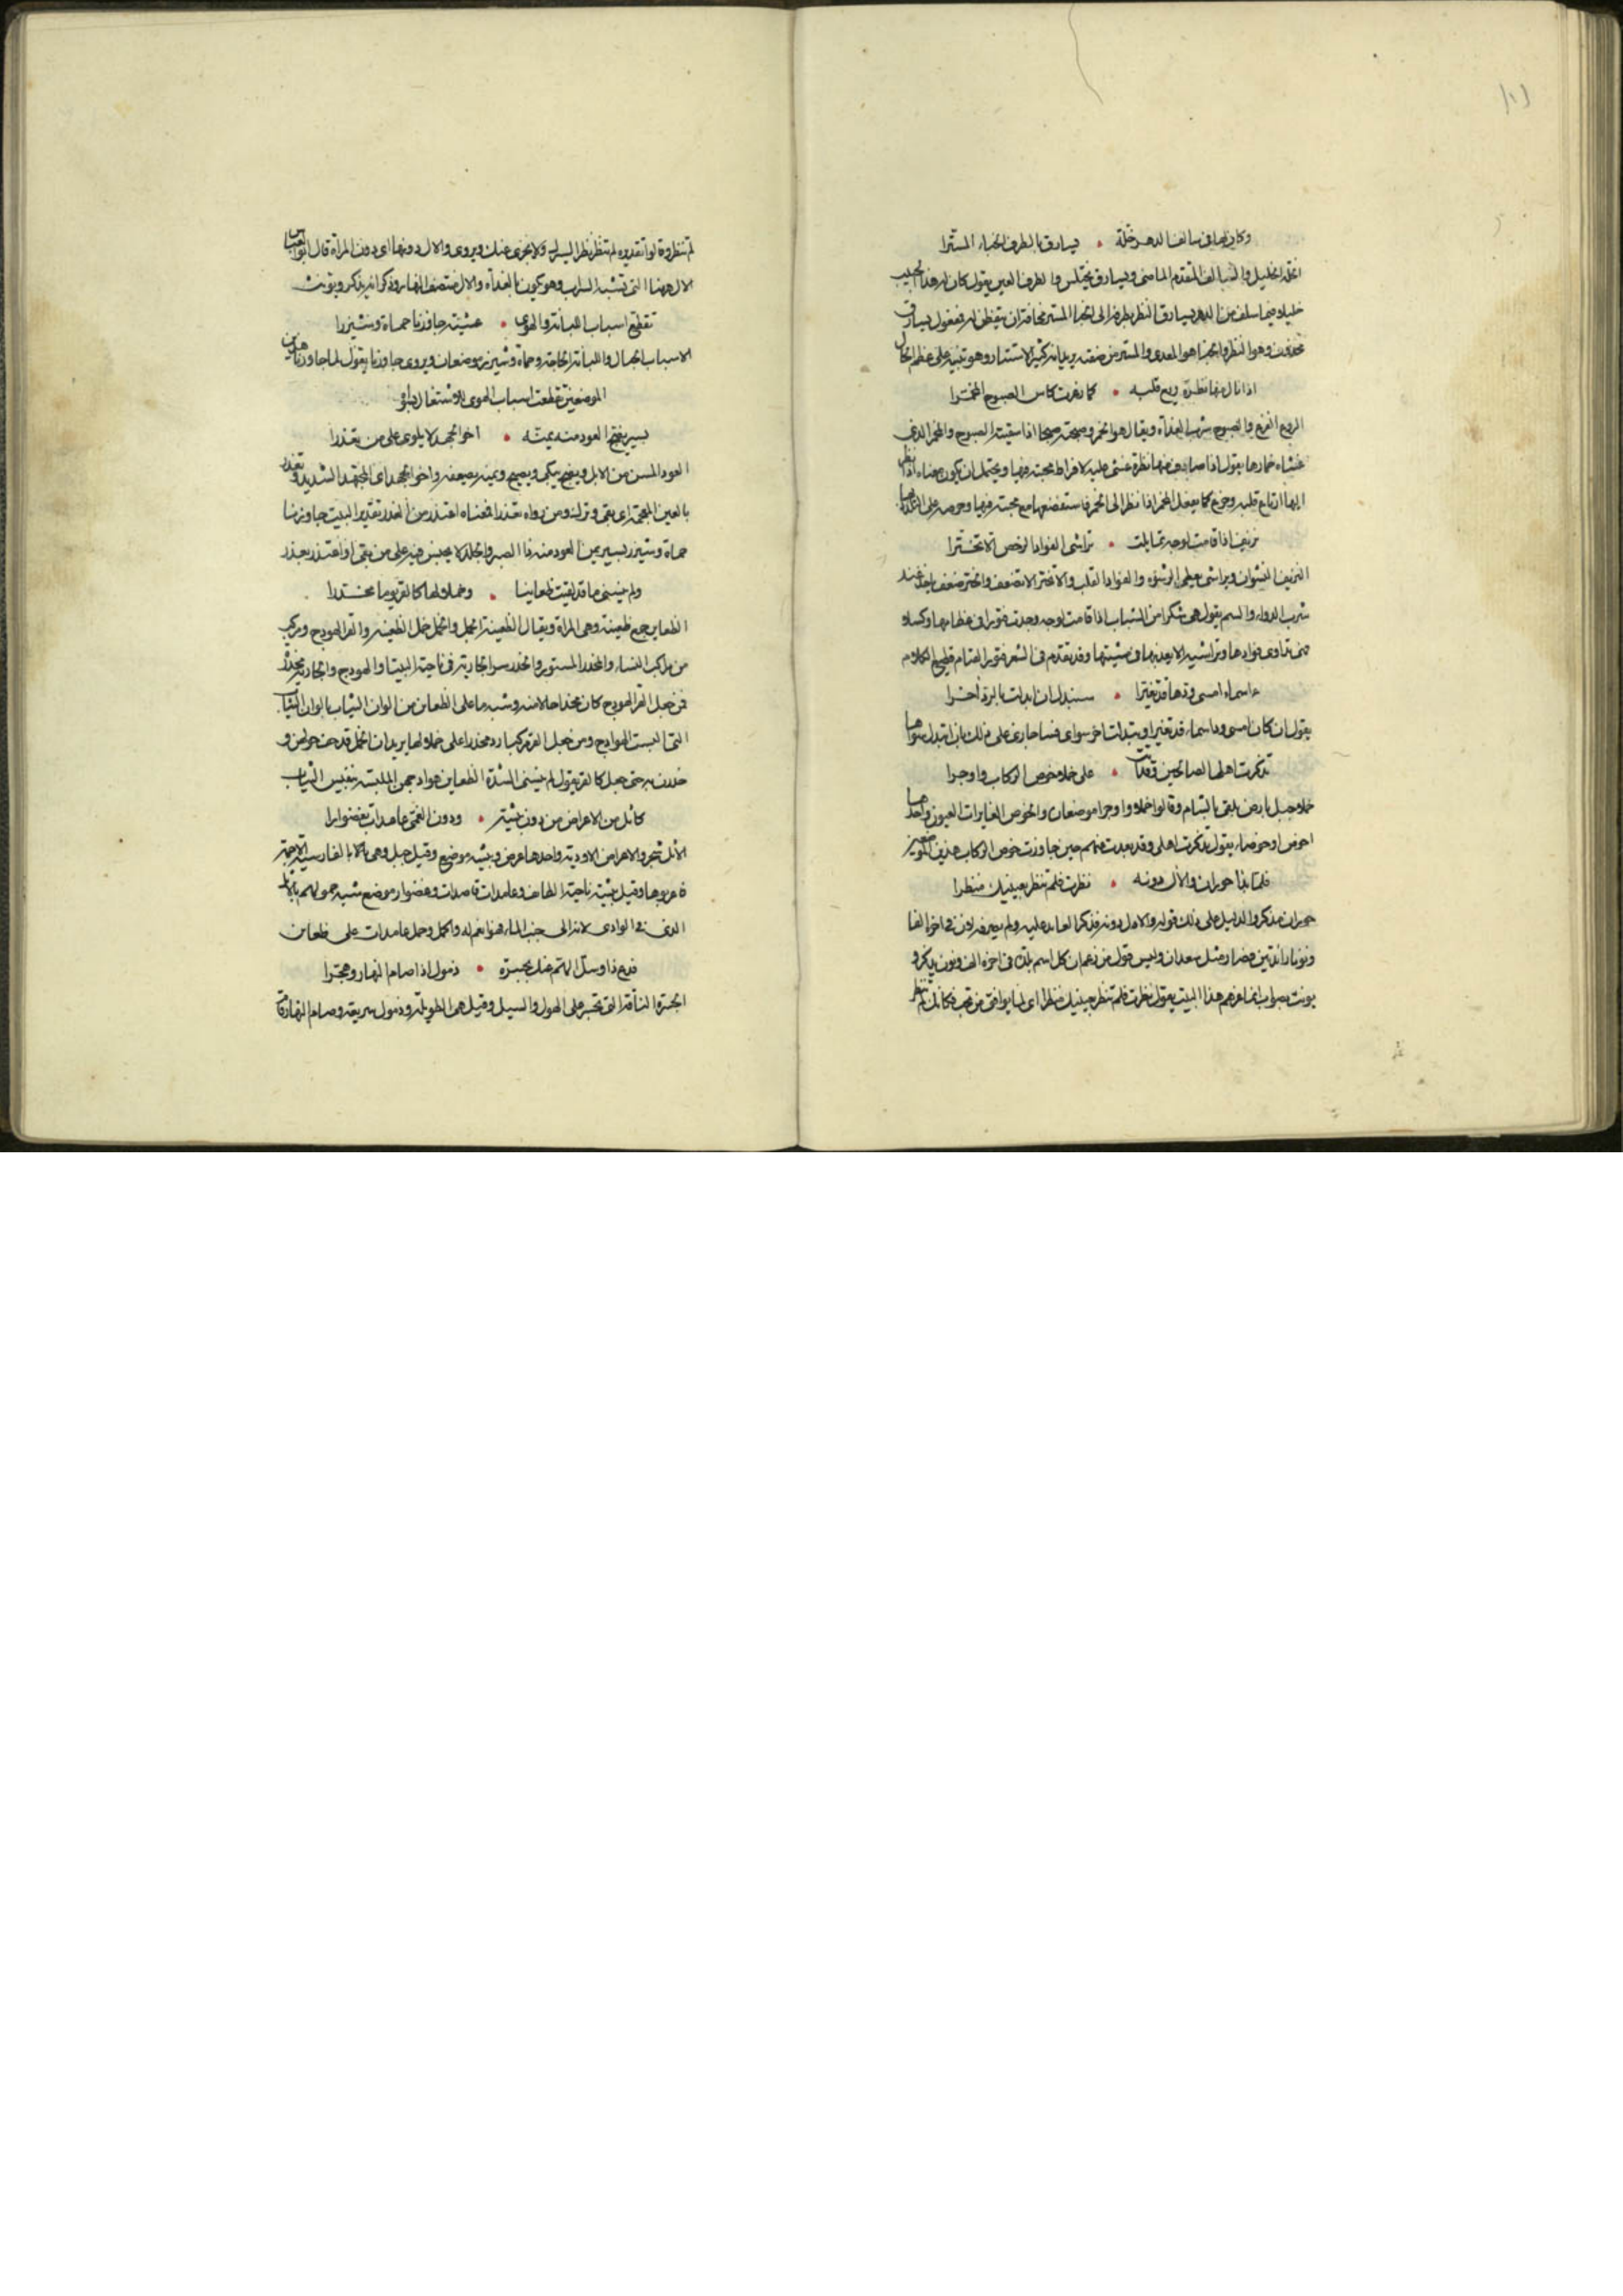 ١٨١
وكان لها في سالف الدهر خلة • يسارق بالطرف الخباء المسترا
الخلة الخليل والسالف المتقدم الماضي ويسارق يختلس والطرف العين يقول كان لهذا الحبيب
خليلا فيما سلف من الدهر يسارق النظر بطرفه الى الخباء المستر مخافة ان يتفطن له فمفعول يسارق
محذوف وهو النظر والخباء هو المعدى والمستر من صفته يريد انه كثير الاستتار وهو تنبيه على عظم الحال
اذا نال منها نظرة ريع قلبه • كما ذعرت كاس الصبوح المخمرا
الروع الفزع والصبوح شرب الغداة ويقال هو الخمر وصبحته صبحا اذا سقيته الصبوح والمخمر الذي
غشاه خمارها يقول اذا صادف منها نظرة غشى عليه لافراط محبته فيها ويحتمل ان يكون معناه اذا نظر
اليها ارتاع قلبه وجزع كما يفعل المخمر اذا نظر الى الخمر فاستفضعها مع محبته فيها وحرصه على
نزيف اذا قامت لوجه تمايلت • تراشى الفواد الرخص الا تخترا
النزيف النشوان وتراشى يعطى الرشوة والفواد القلب والا تختر الا تضعف والختر ضعف ياخذ عند
شرب الدواء والسم يقول هي سكرا من الشباب اذا قامت لوجه وجدت فتورا في عظامها وكسلا
فهى تداوى فوادها وتراشيه الا يعذبها في مشيتها وقد تقدم في الشعر فتور القيام قطيع الكلام
ءاسماء امسى ودها قد تغيرا • سنبدل ان ابدلت بالود اخرا
يقول ان كان امسى ود اسماء قد تغير او تبدلت اخر سواى فساجازى على ذلك بان ابتدل سواها
تذكرت اهلى الصالحين وقد اتت • على خملى خوص الركاب واوجرا
خملى جبل بارض بلقى بالشام وقالوا خملى واوجرا موضعان والخوص الغايرات العيون واحدها
اخوص او خوصاء يقول تذكرت اهلى وقد بعدت عنهم حين جاوزت خوص الركاب هذين الموضعين
فلما بدا حوران والآل دونه • نظرت فلم تنظر بعينيك منظرا
حوران مذكر والدليل على ذلك قوله والال دونه فذكر العايد عليه ولم يصرفه لان في اخره الفا
ونونا زائدتين فصار مثل سعدان وليس قول من زعم ان كل اسم بلدة في اخره الف ونون يذكر و
يونث بصواب انما غرهم هذا البيت يقول نظرت فلم تنظر بعينيك منظرا اى لما يوافق من تحب فكانك لم تنظر
لم تنظر وقالوا تقديره لم تنظر نظرا ليسرك ولا يجزى عنك ويروى والال دونها اى دون المراة قال ابو العباس
الال ههنا التى تشبه السراب وهو يكون بالغداة والال منتصف النهار وذكر انه يذكر ويونث
تقطع اسباب اللبانة والهوى • عشية جاوزنا حماة وشيزرا
الاسباب الحبال واللبانة الحاجة وحماة وشيزر موضعان ويروى جاوزنا يقول لما جاوزنا هذين
الموضعين تقطعت اسباب الهوى للاشتغال
بسير يضج العود منه يمنه • اخو الجهد لا يلوى على من تعذرا
العود المسن من الابل ويضج يبكى ويصيح ويمنه يضعفه واخو الجهد اى المجتهد الشديد وتغدر
بالغين المعجمة اى بقى وترك ومن رواه تعذرا فمعناه اعتذر من العذر تقدير البيت جاوزنا
حماة وشيزر بسير يمن العود منه ذا الصبر والجلد لا يحبس فيه على من بقى او اعتذر بعذر
ولم ينسنى ما قد لقيت ظعاينا • وخملا لها كالقر يوما مخدرا
الظعاين جمع ظعينة وهي المراة ويقال الظعينة الجمل والخمل خمل الظعينة والقر الهودج ومركب
من مراكب النساء والمخدر المستور والخدر ستر الجارية في ناحية البيت او الهودج والجارية مخدرة
فمن جعل القر الهودج كان مخدرا حالا منه وشبه ما على الظعاين من الوان الثياب بالوان الثياب
التى البست الهوادج ومن جعل القر مركبا رد مخدرا على خملا ولها يريد ان الخمل قد حف حولهن و
خدرن به حتى جعل كالقر يقول لم ينسنى الشدة الظعاين هوادجهن الملبسة بنفيس الثياب
كاثل من الاعراض من دون بيشة • ودون الغمير عامدات بغضورا
الاثل شجر والاعراض الاودية واحدها عرض وبيشة موضع وقيل جبل وهي
وقيل بيشة ناحية الطائف وعامدات قاصدات وغضور موضع شبه حمولهم بالاثل
الذى في الوادى لانه الى جنب الماء فهو انعم له واكمل وحمل عامدات على ظعاين
فدع ذا وسل الهم عنك بجسرة • ذمول اذا صام النهار وهجرا
الجسرة الناقة التى تجسر على الهول والسيل وقيل هي الطويلة وذمول سريعة وصام النهار قام